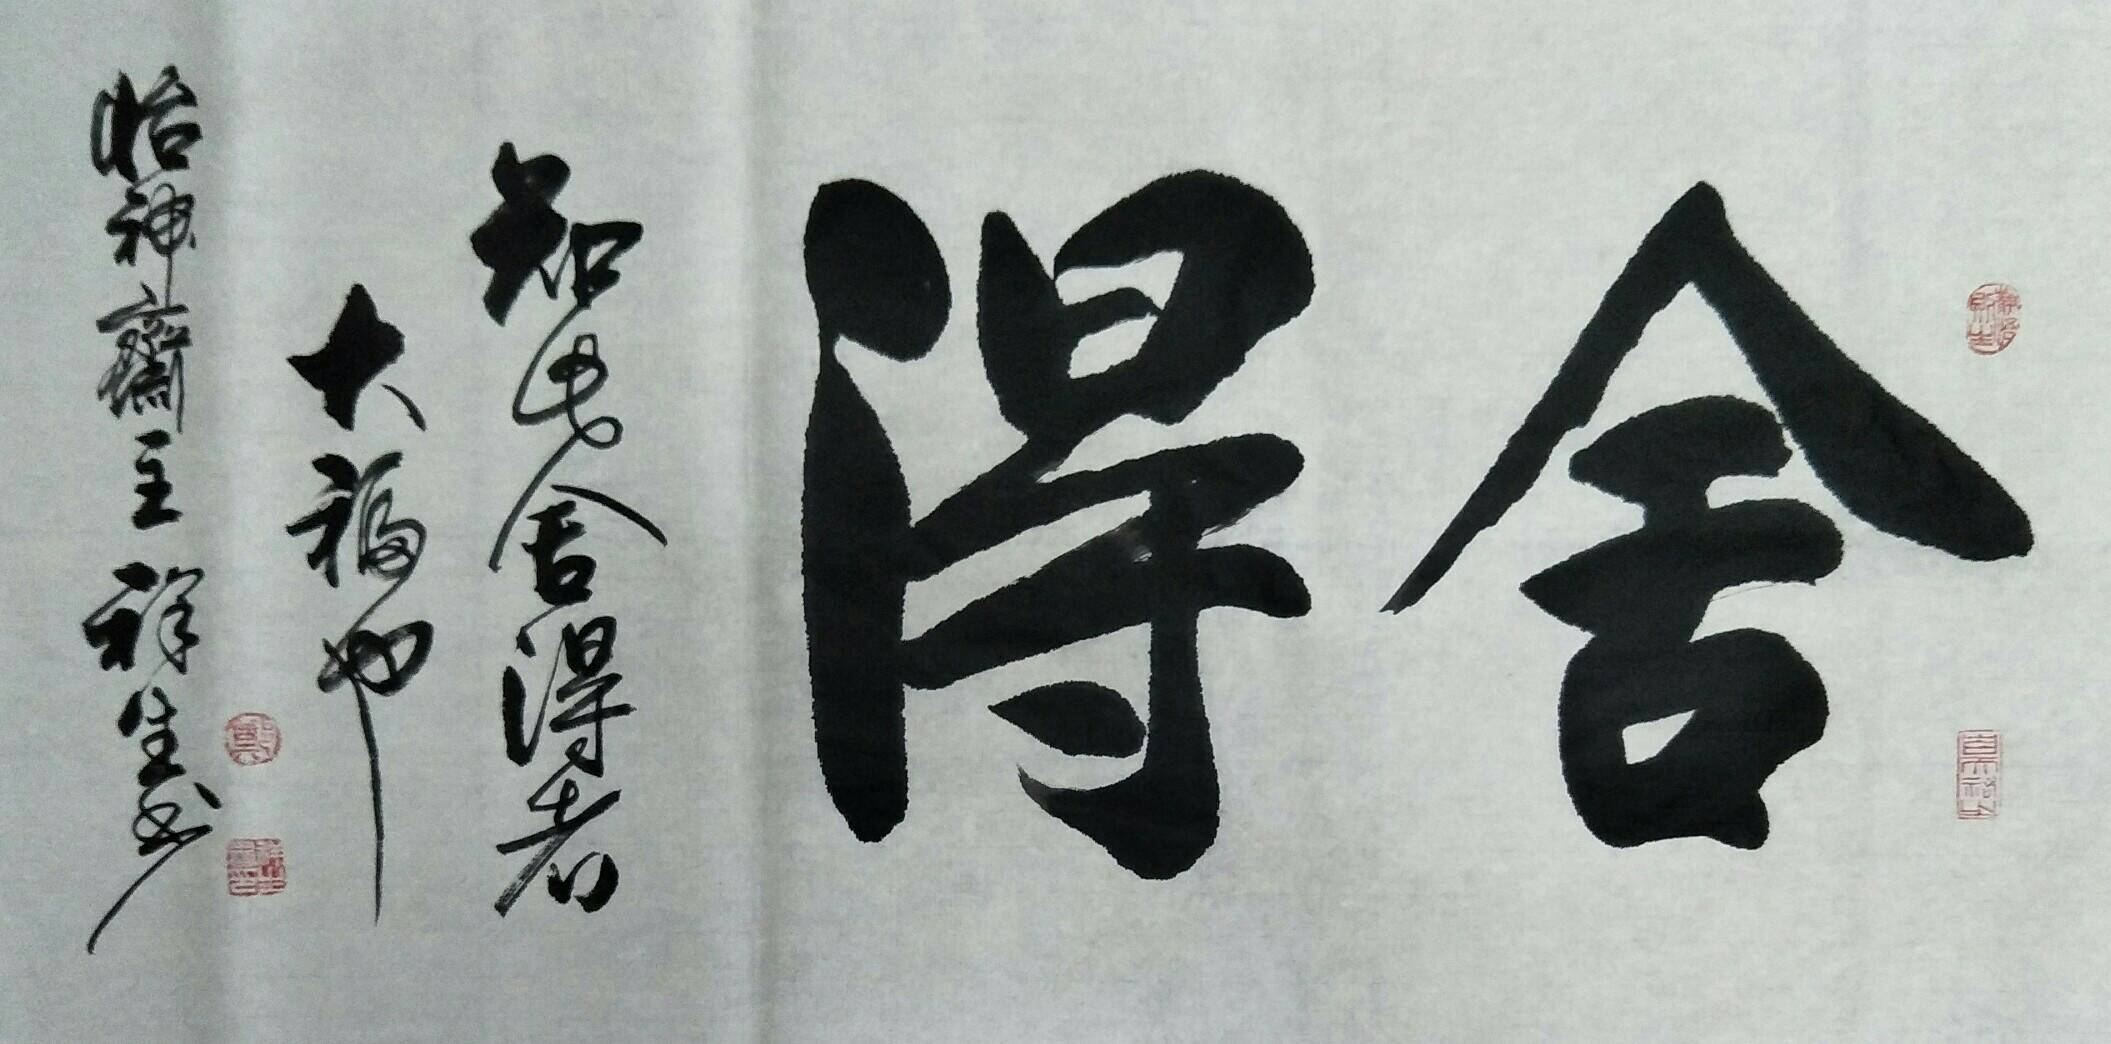 舍得
知其舍得者
大福也
怡神齋主祥生书